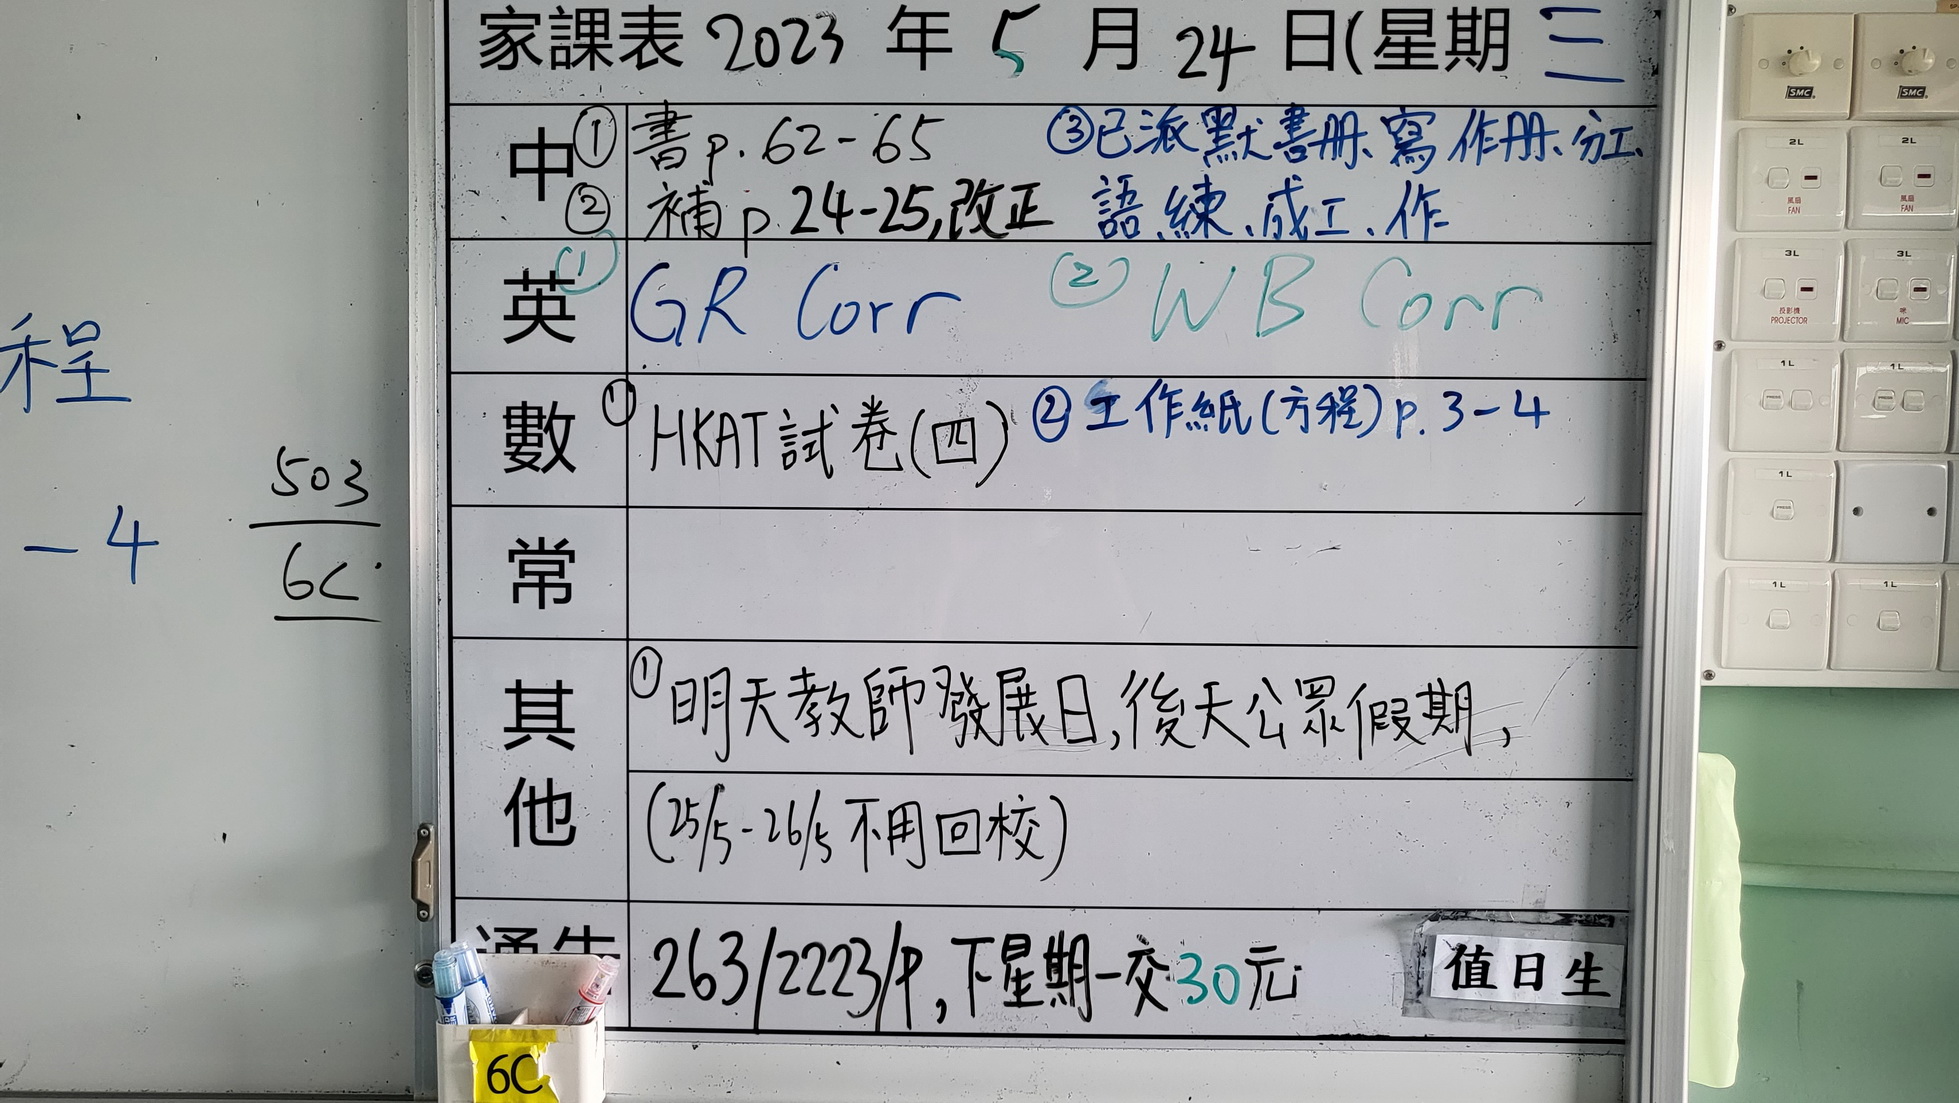 家課表 2023 年 5 月 24 日(星期 三
中 ① 書 p. 62-65 ③已派默書冊、寫作冊、分工、
② 補 p. 24-25,改正 語、練、成工、作
英 (1) GR Corr (2) WB Corr
數 ① HKAT 試卷(四) ② 工作紙(方程) p. 3-4
常
其他 ① 明天教師發展日,後天公眾假期,
(25/5-26/5 不用回校)
通告 263/2223/P, 下星期一交30元
值日生
6C
程
-4
503
6C
SMC
SMC
2L
風扇
FAN
2L
風扇
FAN
3L
投影機
PROJECTOR
3L
咪
MIC
1L
PRESS
1L
PRESS
1L
PRESS
1L
1L